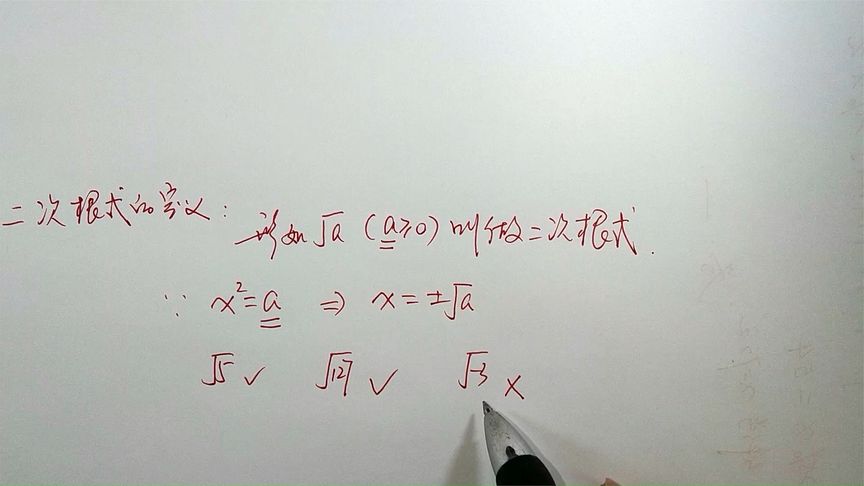 二次根式的定义：形如√a （a≥0）叫做二次根式．
∵ x²=a ⇒ x=±√a
√5 ✓ √127 ✓ √-3 ×